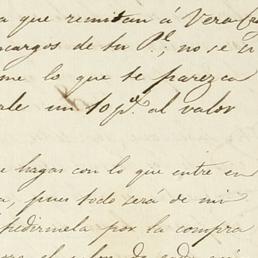 a que remitan á Vera Cru
ncargos de tu P.e; no se en
me lo que te paresca
ale un 10 p.% al valor
hagas con lo que entre en
a, pues todo será de mi
pedirmela por la compra